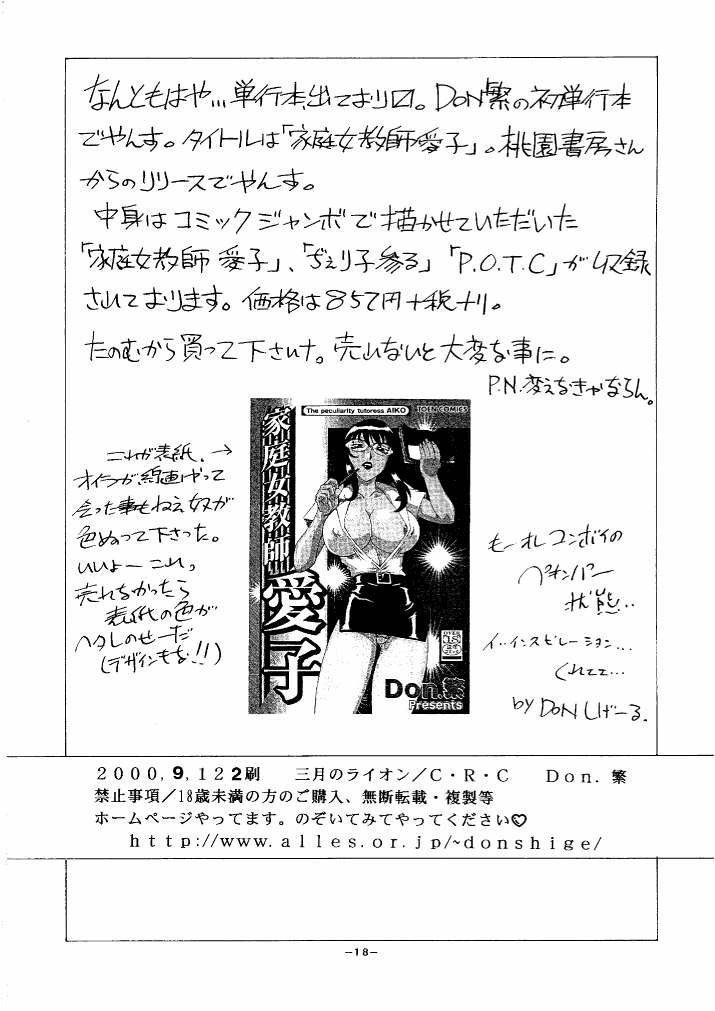 なんともはや…単行本出ており〼。DON繁の初単行本
でやんす。タイトルは「家庭女教師愛子」。桃園書房さん
からのリリースでやんす。
中身はコミックジャンボで描かせていただいた
「家庭女教師 愛子」、「ぢぇり子参る」「P.O.T.C」が収録
されております。価格は857円+税ナリ。
たのむから買って下さいナ。売れないと大変な事に。
P.N.変えなきゃならん。
The peculiarity tutoress AIKO
TOEN COMICS
家庭女教師
愛子
Don.繁
Presents
これが表紙、→
オイラが線画やって
会った事もねえ奴が
色ぬって下さった。
いいよー これっ
売れなかったら
表紙の色が
ヘタレのせーだ
(デザインもな!!)
もーオレコンボイの
状態…
イ…インスピレーション…
くれェェ…
by DON しげーる.
2000,9,12 2刷 三月のライオン/C・R・C Don. 繁
禁止事項/18歳未満の方のご購入、無断転載・複製等
ホームページやってます。のぞいてみてやってください♡
http://www.alles.or.jp/~donshige/
-18-